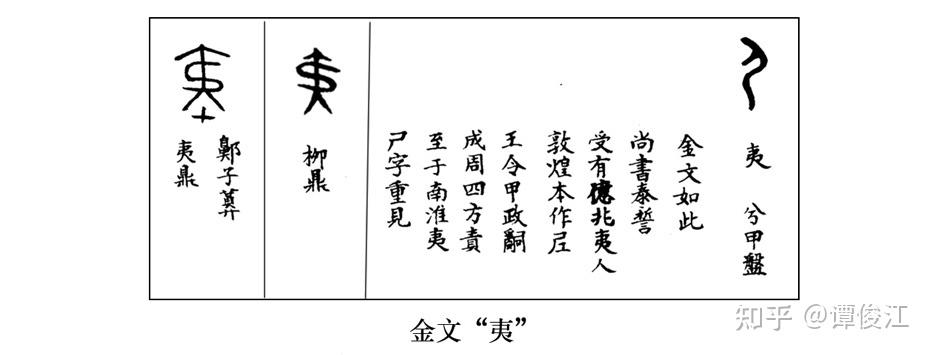 夷 兮甲盤
金文如此
尚書泰誓
受有億兆夷人
敦煌本作𡰥
王令甲政𤔲
成周四方責
至于南淮夷
尸字重見
柳鼎
鄭子㠱
夷鼎
金文“夷”
知乎 @谭俊江